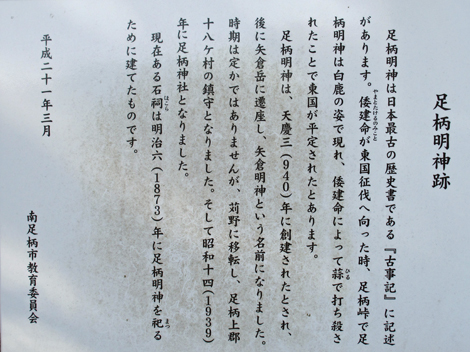 足柄明神跡
足柄明神は日本最古の歴史書である『古事記』に記述
があります。倭建命が東国征伐へ向った時、足柄峠で足
やまとたけるのみこと
柄明神は白鹿の姿で現れ、倭建命によって蒜で打ち殺さ
ひる
れたことで東国が平定されたとあります。
足柄明神は、天慶三(940)年に創建されたとされ、
後に矢倉岳に遷座し、矢倉明神という名前になりました。
時期は定かではありませんが、苅野に移転し、足柄上郡
十八ケ村の鎮守となりました。そして昭和十四(1939)
年に足柄神社となりました。
現在ある石祠は明治六(1873)年に足柄明神を祀る
ほこら
まつ
ために建てたものです。
平成二十一年三月
南足柄市教育委員会